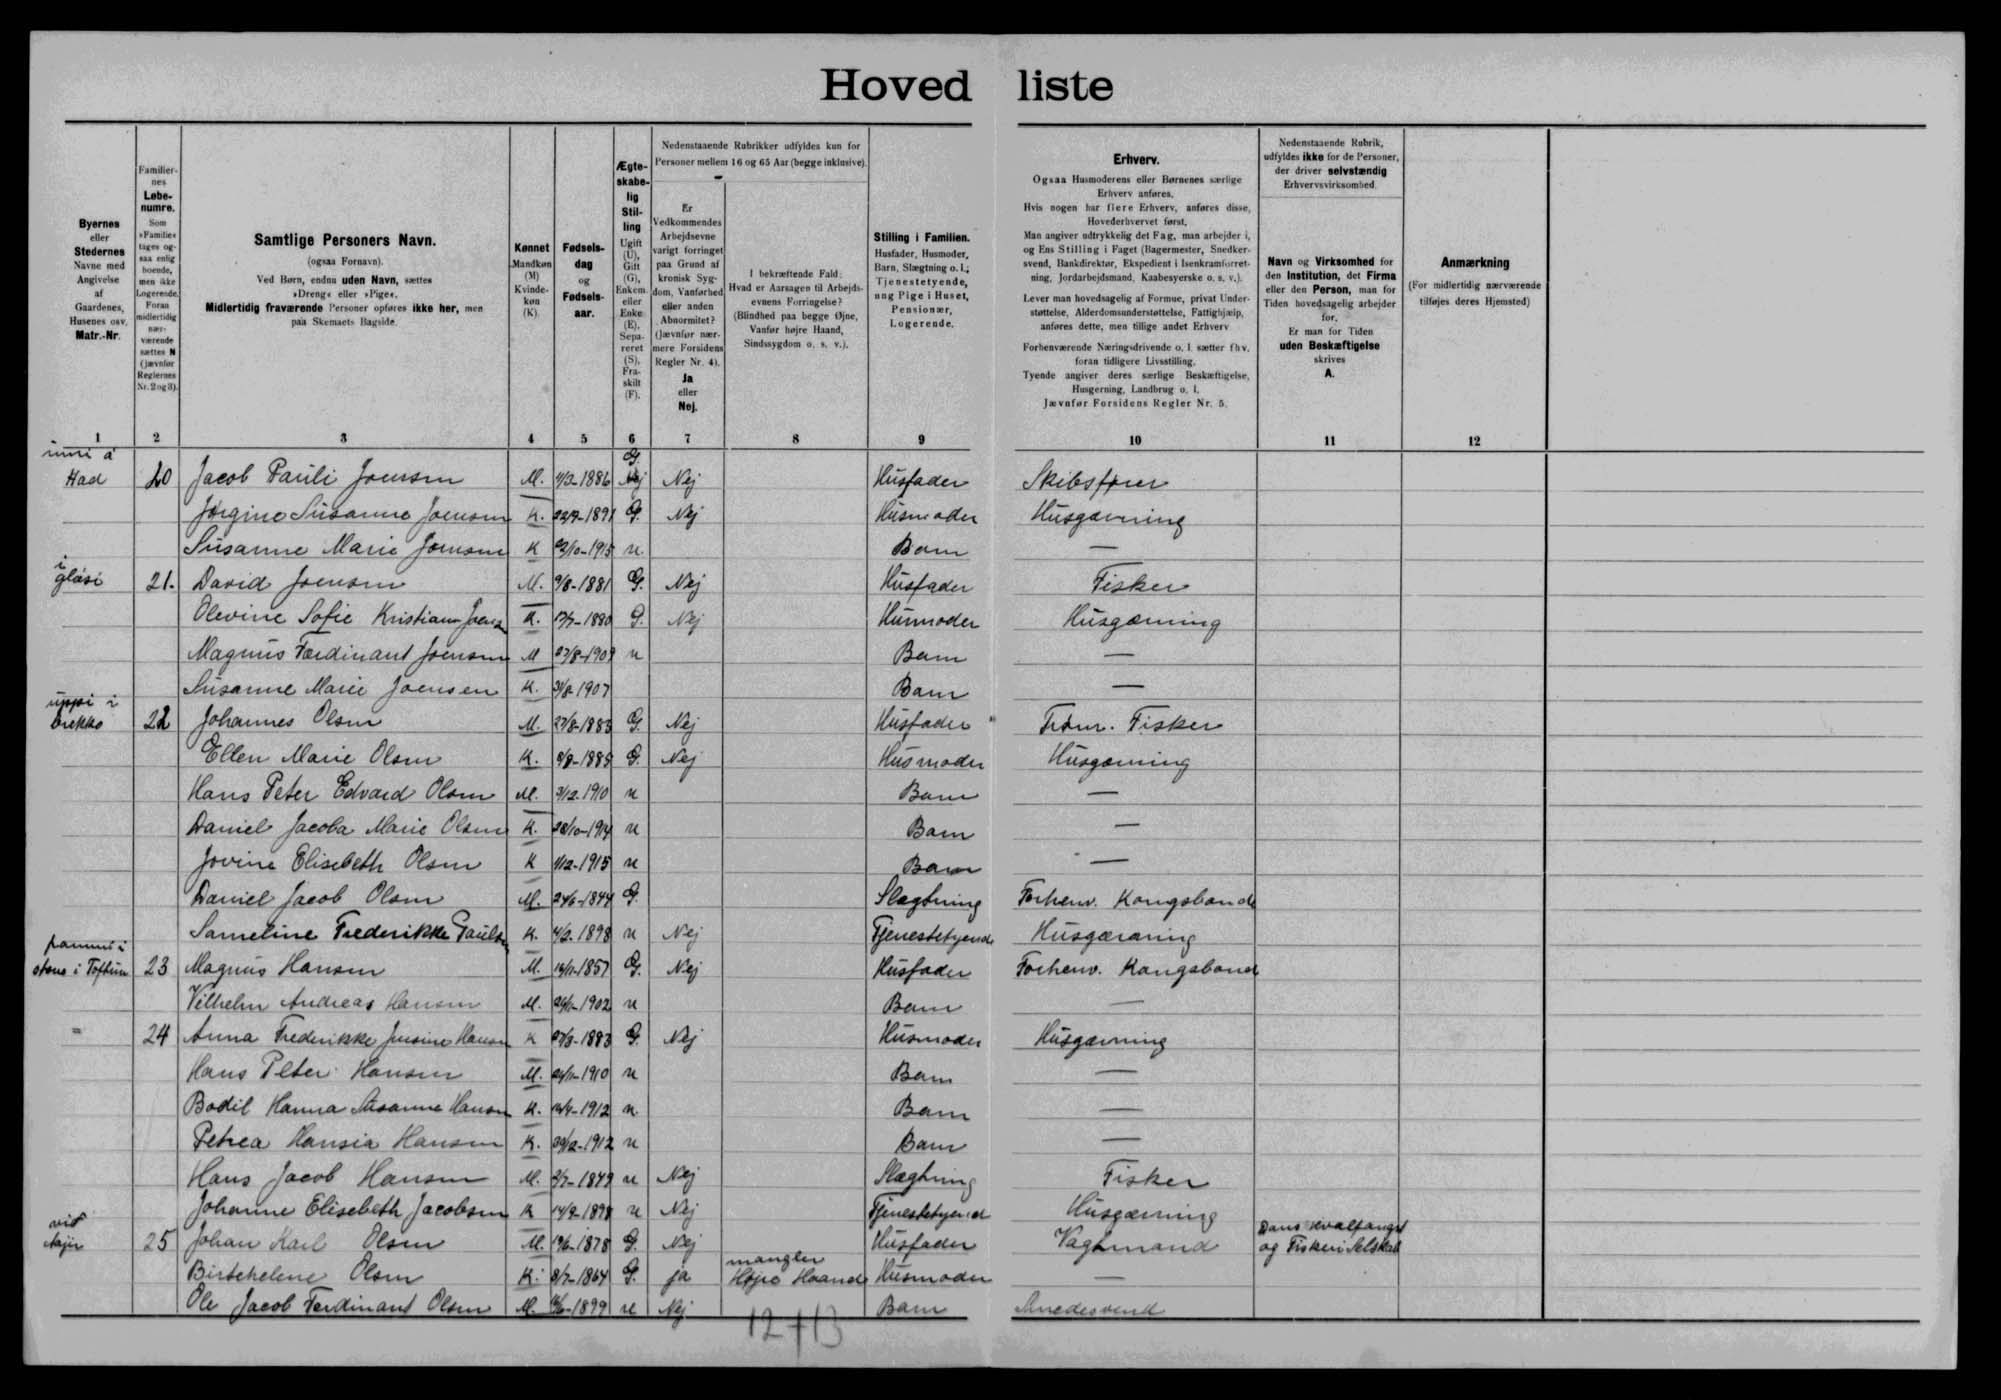 Hoved liste
Byernes
eller
Stedernes
Navne med
Angivelse
af
Gaardenes,
Husenes osv.
Matr.-Nr.
Familier-
nes
Løbe-
numre.
Som
»Familie«
tages og-
saa enlig
boende,
men ikke
Logerende.
Foran
midlertidig
nær-
værende
sættes N
(jævnfør
Reglernes
Nr. 2 og 3).
Samtlige Personers Navn.
(ogsaa Fornavn).
Ved Børn, endnu uden Navn, sættes
»Dreng« eller »Pige«.
Midlertidig fraværende Personer opføres ikke her, men
paa Skemaets Bagside.
Kønnet
Mandkøn
(M)
Kvinde-
køn
(K).
Fødsels-
dag
og
Fødsels-
aar.
Ægte-
skabe-
lig
Stil-
ling
Ugift
(U),
Gift
(G),
Enkem.
eller
Enke
(E),
Sepa-
reret
(S),
Fra-
skilt
(F).
Nedenstaaende Rubrikker udfyldes kun for
Personer mellem 16 og 65 Aar (begge inklusive).
Er
Vedkommendes
Arbejdsevne
varigt forringet
paa Grund af
kronisk Syg-
dom, Vanførhed
eller anden
Abnormitet?
(Jævnfør nær-
mere Forsidens
Regler Nr. 4).
Ja
eller
Nej.
I bekræftende Fald:
Hvad er Aarsagen til Arbejds-
evnens Forringelse?
(Blindhed paa begge Øjne,
Vanfør højre Haand,
Sindssygdom o. s. v.).
Stilling i Familien.
Husfader, Husmoder,
Barn, Slægtning o. l.;
Tjenestetyende,
ung Pige i Huset,
Pensionær,
Logerende.
Erhverv.
Ogsaa Husmoderens eller Børnenes særlige
Erhverv anføres.
Hvis nogen har flere Erhverv, anføres disse,
Hovederhvervet først.
Man angiver udtrykkelig det Fag, man arbejder i,
og Ens Stilling i Faget (Bagermester, Snedker-
svend, Bankdirektør, Ekspedient i Isenkramforret-
ning, Jordarbejdsmand, Kaabesyerske o. s. v.).
Lever man hovedsagelig af Formue, privat Under-
støttelse, Alderdomsunderstøttelse, Fattighjælp,
anføres dette, men tillige andet Erhverv
Forhenværende Næringsdrivende o. l. sætter fhv.
foran tidligere Livsstilling.
Tyende angiver deres særlige Beskæftigelse,
Husgerning, Landbrug o. l.
Jævnfør Forsidens Regler Nr. 5.
Nedenstaaende Rubrik,
udfyldes ikke for de Personer,
der driver selvstændig
Erhvervsvirksomhed.
Navn og Virksomhed for
den Institution, det Firma
eller den Person, man for
Tiden hovedsagelig arbejder
for.
Er man for Tiden
uden Beskæftigelse
skrives
A.
Anmærkning
(For midlertidig nærværende
tilføjes deres Hjemsted)
1 2 3 4 5 6 7 8 9 10 11 12
Had 20 Jacob Pauli Joensen M. 1886 G. Nej Husfader Skibsfører
Jørgine Susanne Joensen K. 1891 G. Nej Husmoder Husgærning
Susanne Marie Joensen K 1915 u Barn —
i
glási 21. David Joensen M. 9/8-1881 G. Nej Husfader Fisker
Olevine Sofie Kristiane K. 1880 G. Nej Husmoder Husgærning
Magnus Færdinant Joensen M 1909 u Barn —
Susanne Marie Joensen K. 1907 Barn —
uppi i
brekko 22 Johannes Olsen M. 27/8-1883 G. Nej Husfader Fisker
Ellen Marie Olsen K. 1885 G. Nej Husmoder Husgærning
Hans Peter Edvard Olsen M. 1910 u Barn —
Daniel Jacoba Marie Olsen K. u Barn —
Jovine Elisebeth Olsen K 1915 u Barn —
Daniel Jacob Olsen M. 24/6-1844 G. Slægtning Forhenv. Kongsbonde
Sameline Frederikke K. 1898 u Nej Tjenestetyende Husgærning
i Toftum 23 Magnus Hansen M. 1857 G. Nej Husfader Forhenv. Kongsbond
Vilhelm Andreas Hansen M. 1902 u Barn —
" 24 Anna Frederikke Hansen K 1883 G. Nej Husmoder Husgærning
Hans Peter Hansen M. 1910 u Barn —
Bodil Hanna Susanne Hansen K. 1912 u Barn —
Petrea Hansia Hansen K. 1912 u Barn —
Hans Jacob Hansen M. 1849 u Nej Slægtning Fisker
Johanne Elisebeth Jacobsen K 1898 u Nej Tjenestetyend Husgærning
við 25 Johan Karl Olsen M. 1878 G. Nej Husfader Vagtmand Dans Hvalfangst
og Fiskeri Selskab
Birtehelene Olsen K. 8/7-1864 G. ja mangler
Højre Haand Husmoder —
Ole Jacob Ferdinant Olsen M. 1899 u Nej Barn
12+13